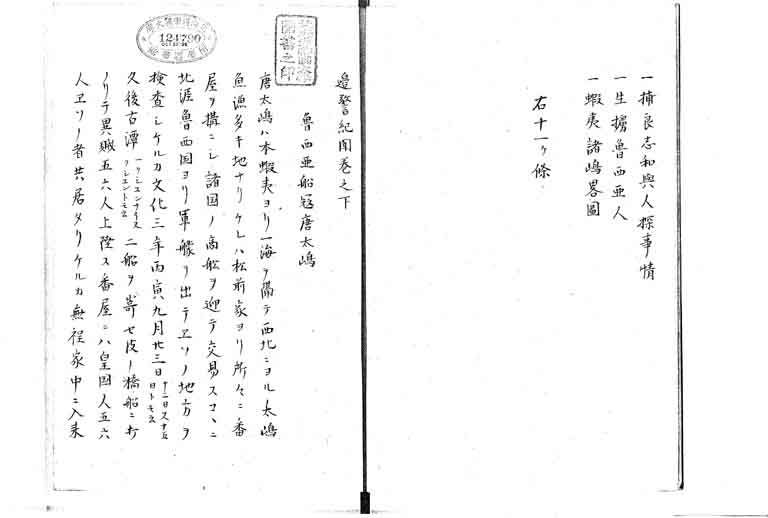 一捕良志和與人探事情
一生擄魯西亜人
一蝦夷諸嶋畧圖
右十一ヶ條
邉警紀聞巻之下
魯西亜船冦唐太嶋
唐太嶋ハ本蝦夷ヨリ一海ヲ隔テ西北ニヨル太嶋
魚漁多キ地ナリケレハ松前家ヨリ所々ニ番
屋ヲ搆ニシ諸国ノ商舩ヲ迎テ交易スコヽニ
北涯魯西国ヨリ軍艨ヲ出テヱソノ地方ヲ
檢査シケルカ文化三年丙寅九月廿三日
十一日ス十五
日トモ云
久後古潭
二船ヲ寄セ彼ノ橋船ニ
ノリテ異賊五六人上陸ス番屋ニハ皇国人五六
人ヱソノ者共居タリケルカ無程家中ニ入来
124790
圖書之印